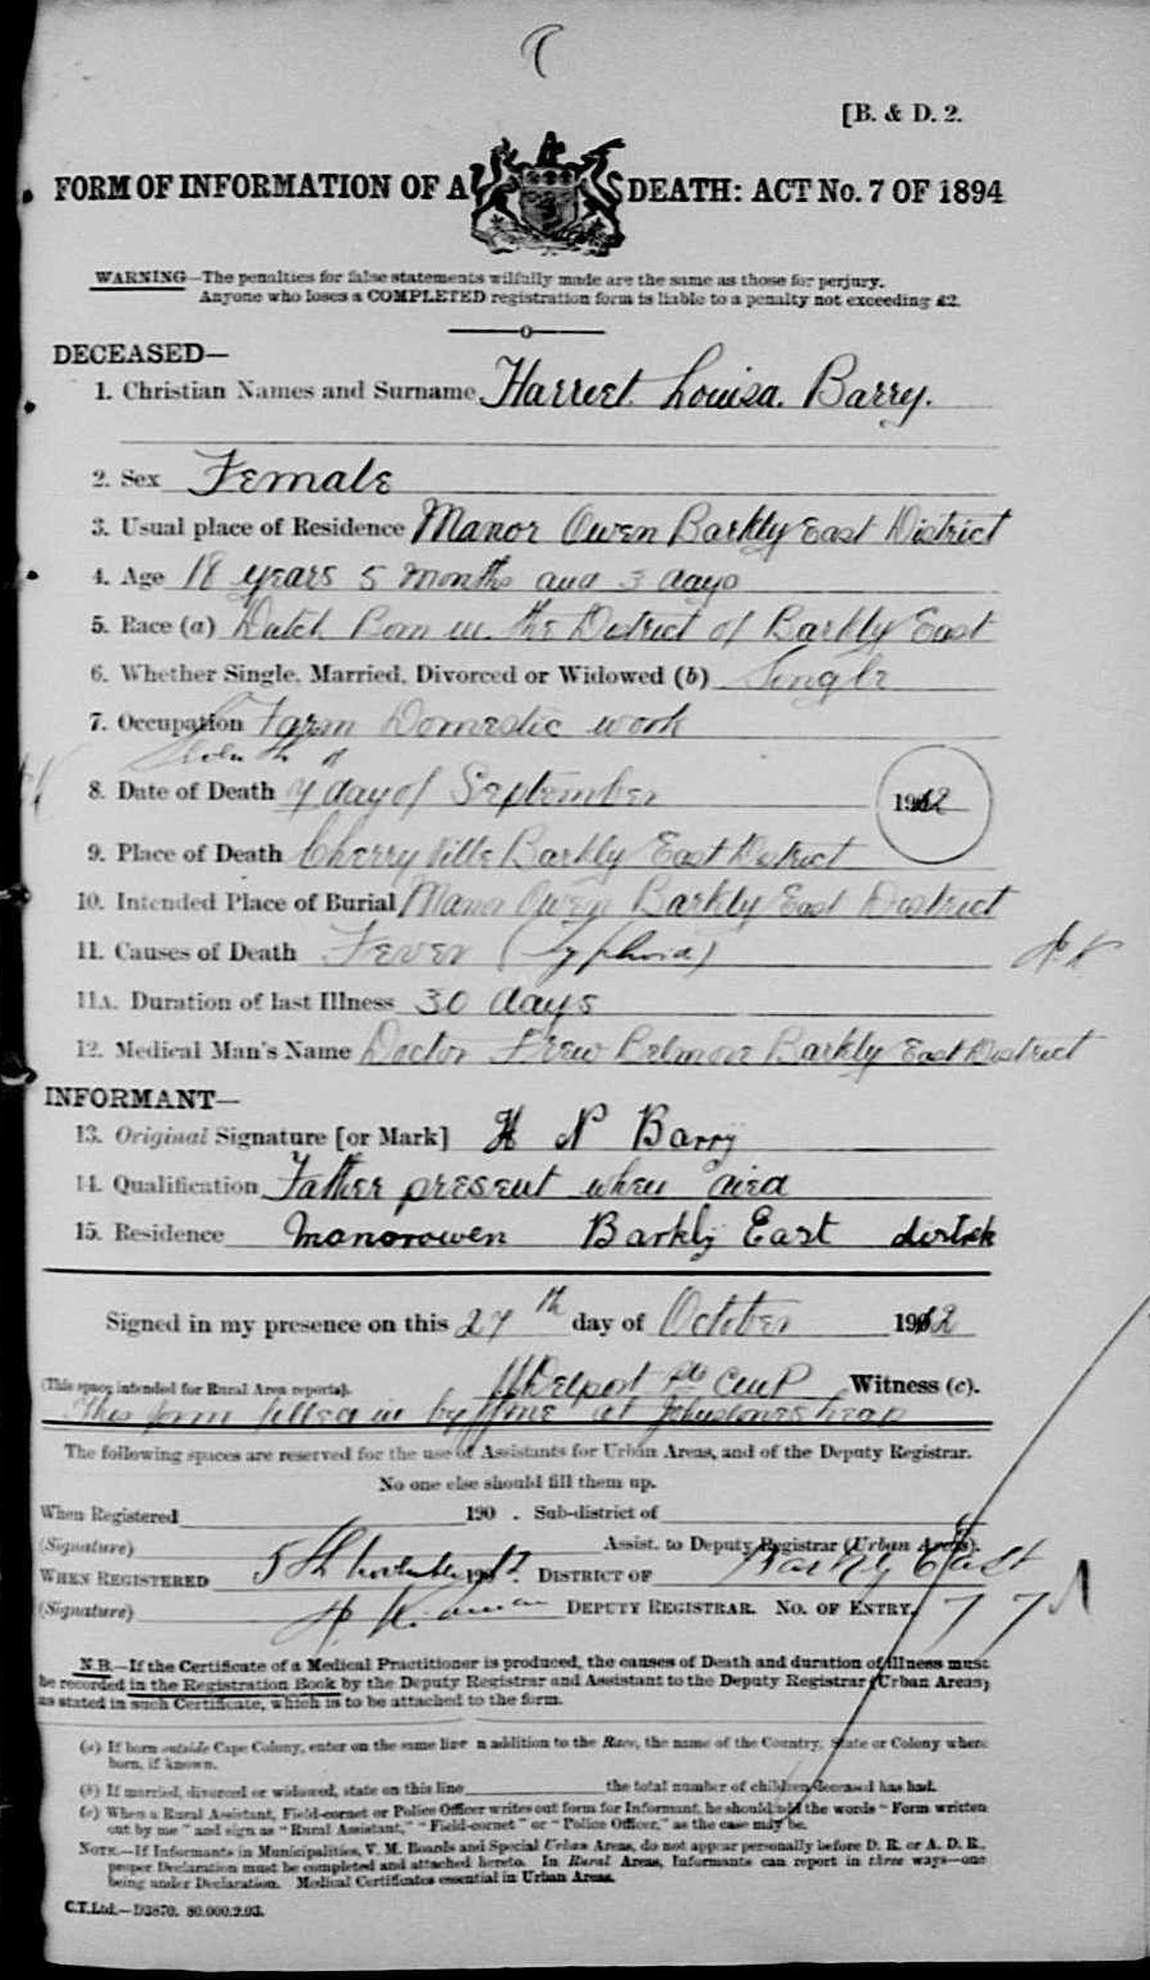 [B. & D. 2.
FORM OF INFORMATION OF A DEATH: ACT No. 7 OF 1894
WARNING—The penalties for false statements wilfully made are the same as those for perjury.
Anyone who loses a COMPLETED registration form is liable to a penalty not exceeding £2.
DECEASED—
1. Christian Names and Surname Harriet Louisa. Barry.
2. Sex Female
3. Usual place of Residence Manor Owen Barkly East District
4. Age 18 years 5 months and 3 days
5. Race (a) Dutch Born in the District of Barkly East
6. Whether Single, Married, Divorced or Widowed (b) Single
7. Occupation Farm Domestic work
Seventh of
8. Date of Death 7 day of September 1912
9. Place of Death Cherry Ville Barkly East District
10. Intended Place of Burial Manor Owen Barkly East District
11. Causes of Death Fever (Typhoid)
11A. Duration of last Illness 30 days
12. Medical Man's Name Doctor Drew Belmore Barkly East District
INFORMANT—
13. Original Signature [or Mark] H N Barry
14. Qualification Father present when died
15. Residence Manorowen Barkly East distrik
Signed in my presence on this 27th day of October 1912
(This space intended for Rural Area reports). Delport CMP Witness (c).
This form filled in by me at
The following spaces are reserved for the use of Assistants for Urban Areas, and of the Deputy Registrar.
No one else should fill them up.
When Registered 190 . Sub-district of
(Signature) Assist. to Deputy Registrar (Urban Areas).
WHEN REGISTERED 5th November 1912. DISTRICT OF Barkly East
(Signature) DEPUTY REGISTRAR. No. OF ENTRY, 77
N.B.—If the Certificate of a Medical Practitioner is produced, the causes of Death and duration of illness must
be recorded in the Registration Book by the Deputy Registrar and Assistant to the Deputy Registrar (Urban Areas)
as stated in such Certificate, which is to be attached to the form.
(a) If born outside Cape Colony, enter on the same line in addition to the Race, the name of the Country, State or Colony where
born, if known.
(b) If married, divorced or widowed, state on this line the total number of children deceased has had.
(c) When a Rural Assistant, Field-cornet or Police Officer writes out form for Informant, he should add the words "Form written
out by me" and sign as "Rural Assistant," "Field-cornet" or "Police Officer," as the case may be.
NOTE.—If Informants in Municipalities, V. M. Boards and Special Urban Areas, do not appear personally before D. R. or A. D. R.,
proper Declaration must be completed and attached hereto. In Rural Areas, Informants can report in three ways—one
being under Declaration. Medical Certificates essential in Urban Areas.
C.T.Ltd.—D3870. 80.000.9.03.